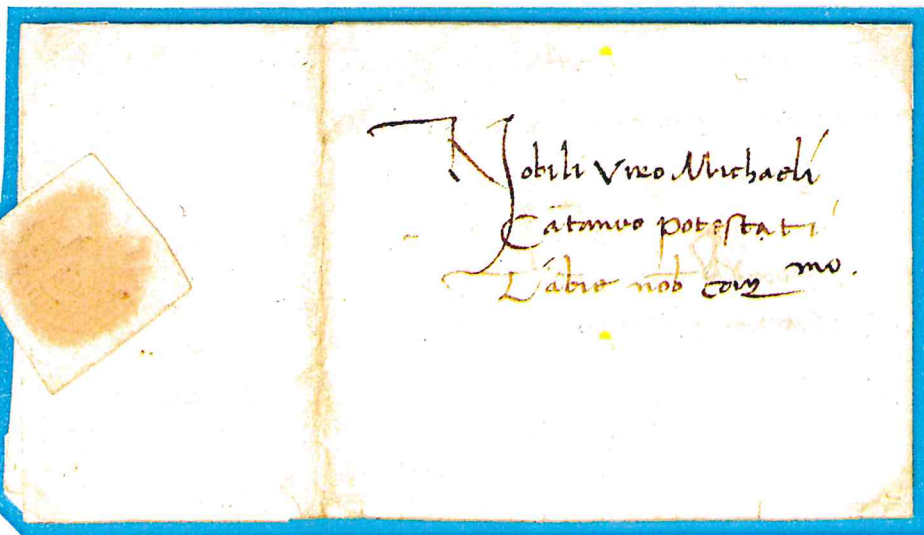 Nobili viro Michaeli
Cataneo potestati
nob̄ mo.